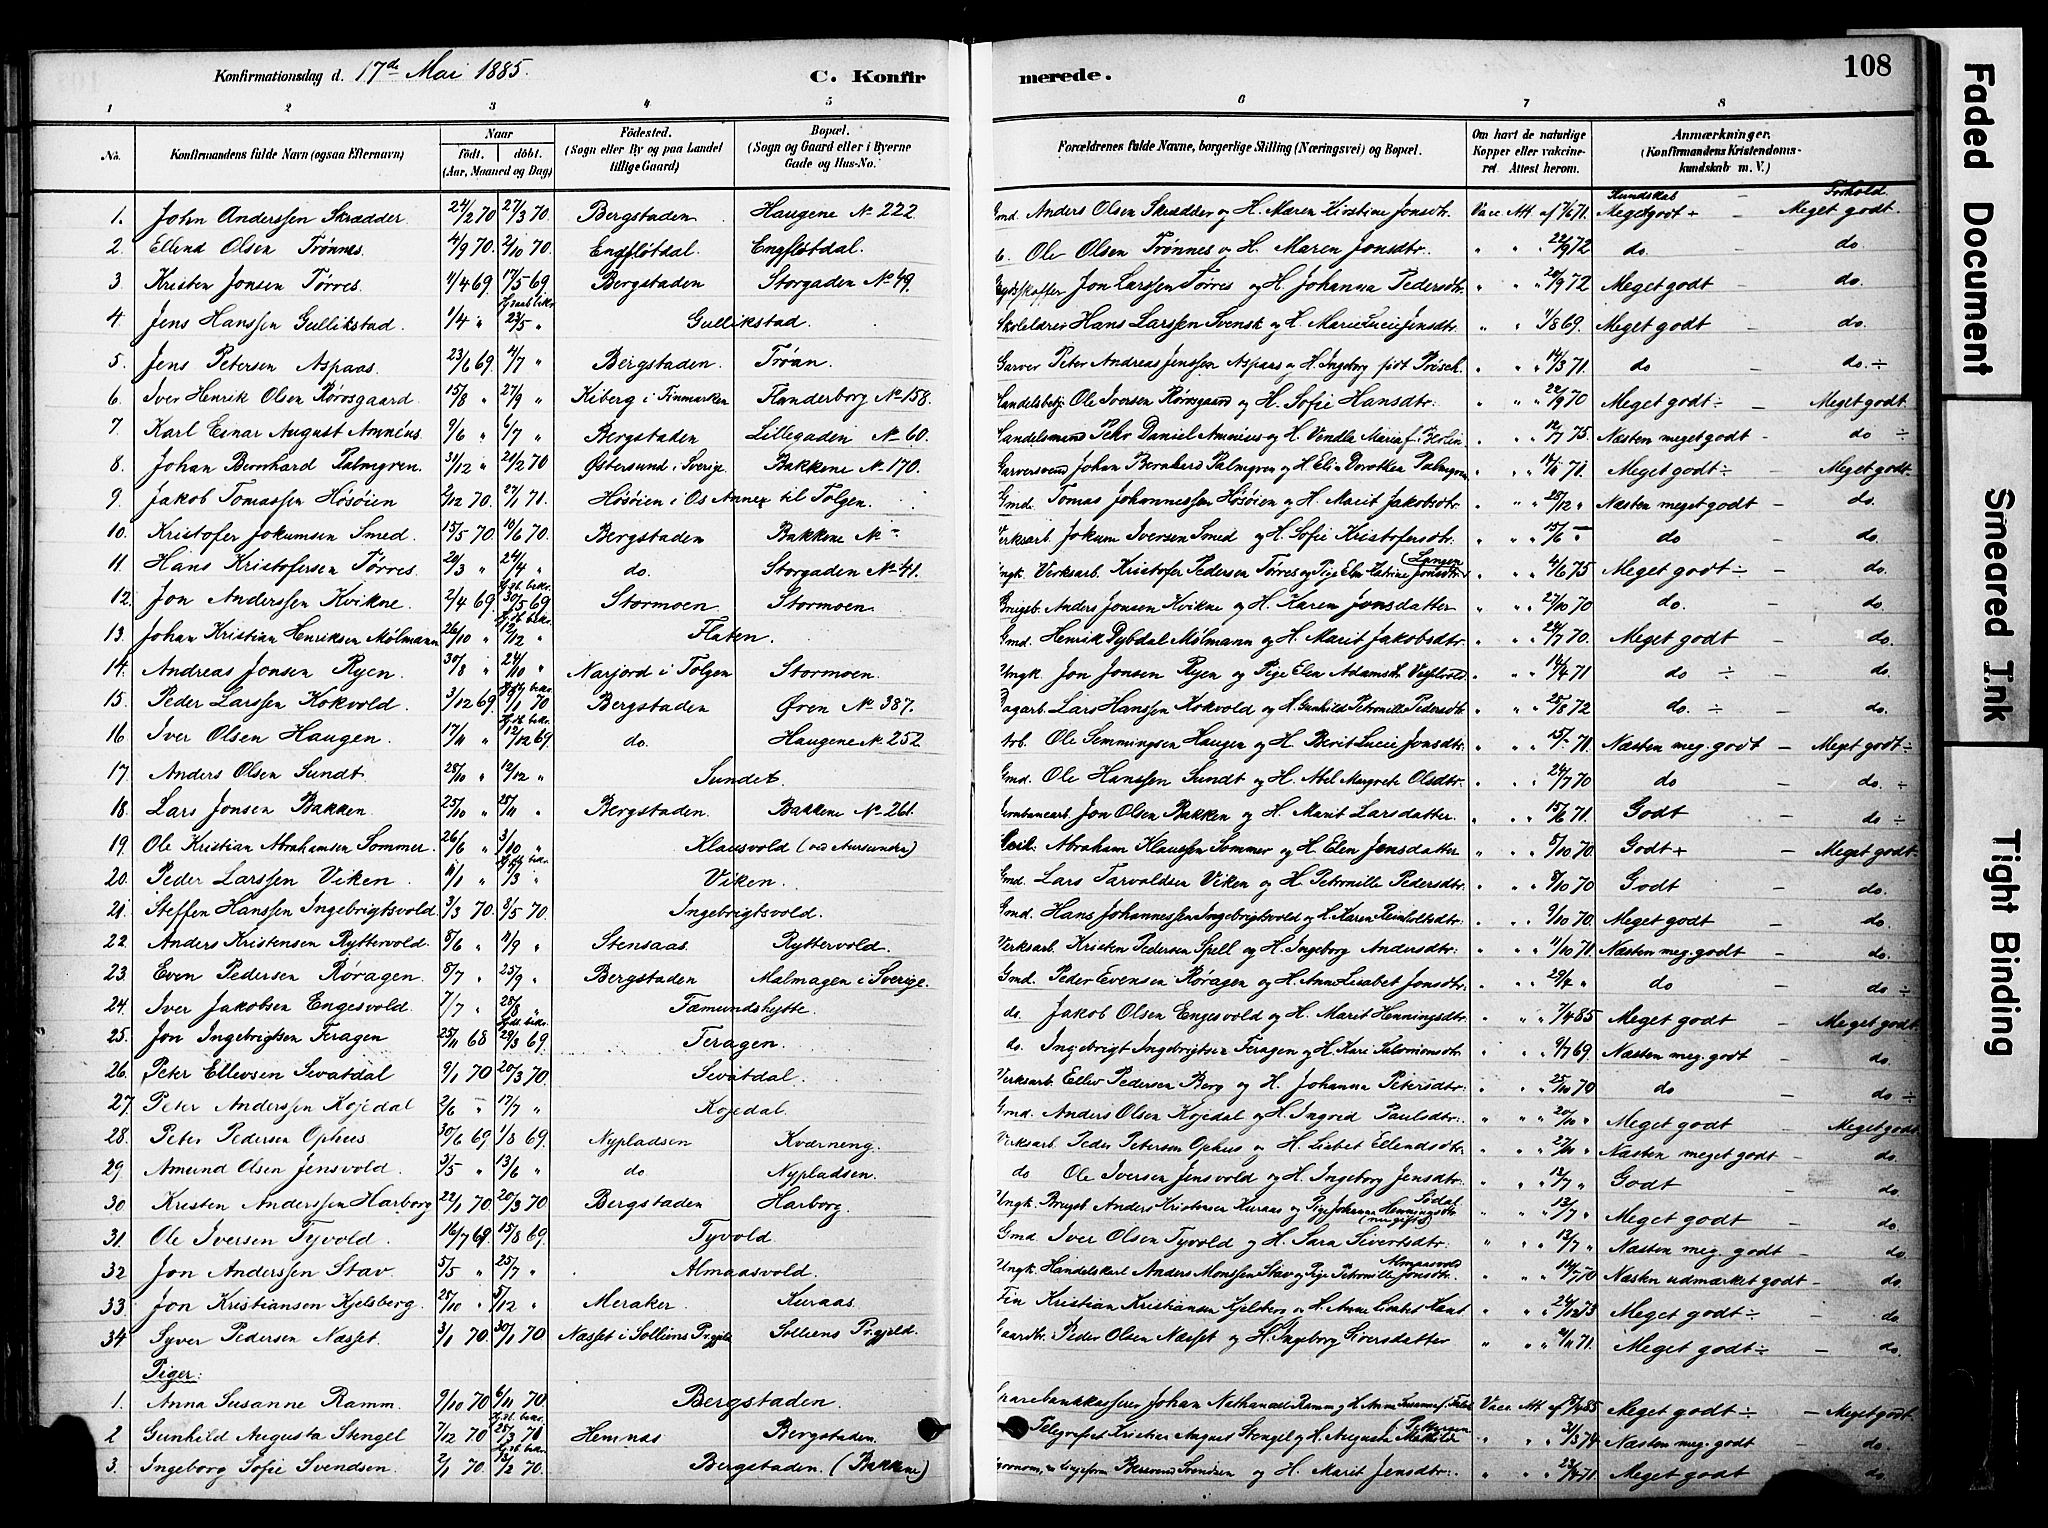 Konfirmationsdag d. 17de Mai 1885. C. Konfir
merede. 108
1 2 3 4 5 6 7 8
No. Konfirmandens fulde Navn (ogsaa Efternavn) Naar födt. döbt. (Aar, Maaned og Dag) Födested. (Sogn eller By og paa Landet tillige Gaard) Bopæl. (Sogn og Gaard eller i Byerne Gade og Hus-No.) Forældrenes fulde Navne, borgerlige Stilling (Næringsvei) og Bopæl. Om havt de naturlige Kopper eller vakcineret. Attest herom. Anmærkninger. (Konfirmandens Kristendomskundskab m. V.)
Kundskab - Forhold
1. John Anderssen Skrædder 24/2 70 27/3 70. Bergstaden Haugene No 222 Gmd. Anders Olsen Skrædder og H. Maren Kirstine Jonsdtr. Vacc. Att. af 7/6 71. Meget godt + - Meget godt.
2. Ellend Olsen Trönnes 4/9 70. 2/10 70 Engflötdal Engflötdal. Ole Olsen Trönnes og H. Maren Jonsdtr. " " 22/9 72 do. - do.
3. Kristen Jonsen Törres 1/4 69. 17/5 69 Bergstaden Storgaden No 49. Jon Larssen Törres og H. Johanna Pedersdtr " " 20/9 72 Meget godt - do.
4. Jens Hanssen Gullikstad. 1/4 " 23/5 " Gullikstad. Skolelærer Hans Larssen Svensk og H. Marie Lucie Jensdtr. " " 1/8 69. Meget godt - do.
5. Jens Petersen Aspaas. 23/6 69. 4/7 " Bergstaden Tröan. Garver Peter Andreas Jenssen Aspaas og H. Ingeborg födt Prösch. " " 14/3 71. do - do. ÷
6. Iver Henrik Olsen Rörosgaard 15/8 " 27/9 " Kiberg i Finmarken Flanderborg No 158. Handelsbetj. Ole Iversen Rörosgaard og H. Sofie Hansdtr: " " 22/9 70 Meget godt ÷ - Meget godt.
7. Karl Einar August Amnéus 9/6 " 6/7 " Bergstaden Lillegaden No 60. Handelsmand Pehr Daniel Amnéus og H. Vendla Maria f. Berlin " " 12/7 75. Næsten meget godt - do ÷
8. Johan Bernhard Palmgren. 31/12 " 21/2 70 Östersund i Sverige. Bakkene No 170. Garversvend Johan Bernhard Palmgren og H. Elin Dorothea Palmgren " " 71. Meget godt ÷ - Meget godt.
9. Jakob Tomassen Hösöien 2/12 70. 27/1 71. Hösöien i Os Annex til Tolgen. Gmd. Tomas Johannessen Hösöien og H. Marit Jakobsdtr. " " 25/12 " Næsten meget godt - do.
10. Kristofer Jokumsen Smed. 15/5 70 10/6 70. Bergstaden Bakkene No - Verksarb. Jokum Iversen Smed og H. Sofie Kristofersdtr. " " 15/6 " do - do.
11. Hans Kristofersen Törres 20/3 " 24/4 " do. Storgaden No 41. Ungk. Verksarb. Kristofer Pedersen Törres og Pige Elen Katrine Jonsdtr. " " 4/6 75 Meget godt ÷ - do.
12. Jon Anderssen Kvikne. 2/4 69. 30/5 69 Stormoen Stormoen. Brugsb. Anders Jonsen Kvikne og H. Karen Jonsdatter " " 27/10 70 do. - do.
13. Johan Kristian Henriksen Mölmann 26/10 " 12/12 " Flaten. Gmd. Henrik Dybdal Mölmann og H. Marit Jakobsdtr. " " 24/7 70. Meget godt - do.
14. Andreas Jonsen Ryen 30/8 " 24/10 " Narjord i Tolgen Stormoen. Ungk Jon Jonsen Ryen og Pige Elen Adamsdtr. " " 14/4 71 do ÷ - do.
15. Peder Larssen Kokvold. 3/12 69. 9/1 70 Bergstaden Ören No 387. Dagarb. Lars Hanssen Kokvold og H. Gunhild Petronille Pedersdtr " " 25/8 72 do. ÷ - do.
16. Iver Olsen Haugen. 17/11 " 12/12 69. do. Haugene No 252. Arb. Ole Semmingsen Haugen og H. Berit Lucie Jonsdtr. " " 71. Næsten meg. godt - Meget godt ÷
17. Anders Olsen Sundt. 28/10 " 12/12 " Sundet. Gmd. Ole Hanssen Sundt og H. Abel Margrete Olsdtr. " " 24/7 70 do - do. ÷
18. Lars Jonsen Bakken. 25/10 " 28/11 " Bergstaden. Bakkene No 261. Jernbanearb. Jon Olsen Bakken og H. Marit Larsdatter " " 15/6 71. Godt - do ÷
19. Ole Kristian Abrahamsen Sommer. 26/6 " 3/10 " Klausvold (ved Aursunden) Abraham Klaussen Sommer og H. Elen Jensdatter " " 8/10 70. Godt + - Meget godt.
20. Peder Larssen Viken. " 1/3 " Viken. Gmd. Lars Tarvaldsen Viken og H. Petronille Pedersdtr. " " 8/10 70 Godt - do.
21. Steffen Hanssen Ingebrigtsvold 3/3 70. 8/5 70. Ingebrigtsvold. Gmd. Hans Johannessen Ingebrigtsvold og H. Karen Reinholtsdtr. " " 9/10 70. Meget godt - do.
22. Anders Kristensen Ryttervold. 8/6 " 4/9 " Stensaas. Ryttervold. Verksarb. Kristen Pedersen Spell og H. Ingeborg Andersdtr: " " 11/10 71. Næsten meg. godt - do.
23. Even Pedersen Röragen. 8/7 " 25/9 " Bergstaden Malmagen i Sverige. Gmd. Peder Evensen Röragen og H. Ane Lisabet Jonsdtr. " " 29/7 " do - do ÷
24. Iver Jakobsen Engesvold. 7/7 " 28/8 " Fæmundshytte. do. Jakob Olsen Engesvold og H. Marit Henningsdtr. " " 7/4 85 Meget godt - Meget godt
25. Jon Ingebrigtsen Feragen 25/11 68 29/3 69. Feragen. do. Ingebrigt Ingebrigtsen Feragen og H. Kari Salomonsdtr " " 9/7 69. Næsten meg. godt - do.
26. Peter Ellevsen Sevatdal 9/1 70 20/3 70. Sevatdal. Verksarb. Ellev Pedersen Berg og H. Johanna Petersdtr: " " 25/10 70 do - do. ÷
27. Peter Anderssen Kojedal 2/6 " 17/7 " Kojedal. Gmd. Anders Olsen Kojedal og H. Ingrid Paulsdtr: " " 20/10 " Meget godt - Meget godt
28. Peter Pedersen Ophus 30/6 69. 1/8 69. Nypladsen Kværneng. Verksarb. Peder Petersen Ophus og H. Lisbet Ellendsdtr. " " 27/10 " Næsten meget godt - do.
29 Amund Olsen Jensvold. 3/5 " 13/6 " do Nypladsen. do Ole Iversen Jensvold og H. Ingeborg Jensdtr: " " 12/7 " Godt - do.
30 Kristen Anderssen Harborg 22/1 70. 20/3 70. Bergstaden Harborg. Ungk. Brugsb. Anders Kristensen Kuraas og Pige Johanna Henningsdtr Södal (nu gift) " " 13/7 " Meget godt - do.
31. Ole Iversen Tyvold. 16/7 69 15/8 69. Tyvold Gmd. Iver Olsen Tyvold og H. Sara Sivertsdtr. " " 13/7 " Næsten meg. godt - do.
32 Jon Anderssen Stav. 5/5 " 25/7 " Almaasvold. Ungk. Handelskarl Anders Monssen Stav og Pige Petronille Jonsdtr. " " 14/7 70 Næsten udmærket godt - do.
33. Jon Kristiansen Kjelsberg. 25/10 " 5/12 " Meraker Kuraas. Fin Kristian Kristiansen Kjelsberg og H. Anne Lisabet Kant " " 24/12 73 Meget godt ÷ do.
34. Syver Pedersen Næsset. 3/1 70. 30/1 70 Næsset i Solliens Prgjeld Solliens Prgjeld. Gaardbr. Peder Olsen Næsset og H. Ingeborg Siversdatter " " 71. Meget godt ÷ - do.
Piger:
1. Anna Susanne Ramm. 9/10 70 6/11 70. Bergstaden. Sparebankkasserer Johan Nathanael Ramm og H. Anne Susanne Vacc. Att. af 85 Meget godt ÷ - Meget godt.
2 Gunhild Augusta Stengel 7/12 70 25/3 71 Hemnæs Bergstaden. Telegrafist Kristian August Stengel og H. Augusta Mathilde " " 31/3 74 Næsten meg. godt - do.
3. Ingeborg Sofie Svendsen. 2/1 70. 13/2 70. Bergstaden. (Bakkene) Svendsen og H. Marit Jensdtr: " " 71 Meget godt - do.
Faded Document
Smeared Ink
Tight Binding